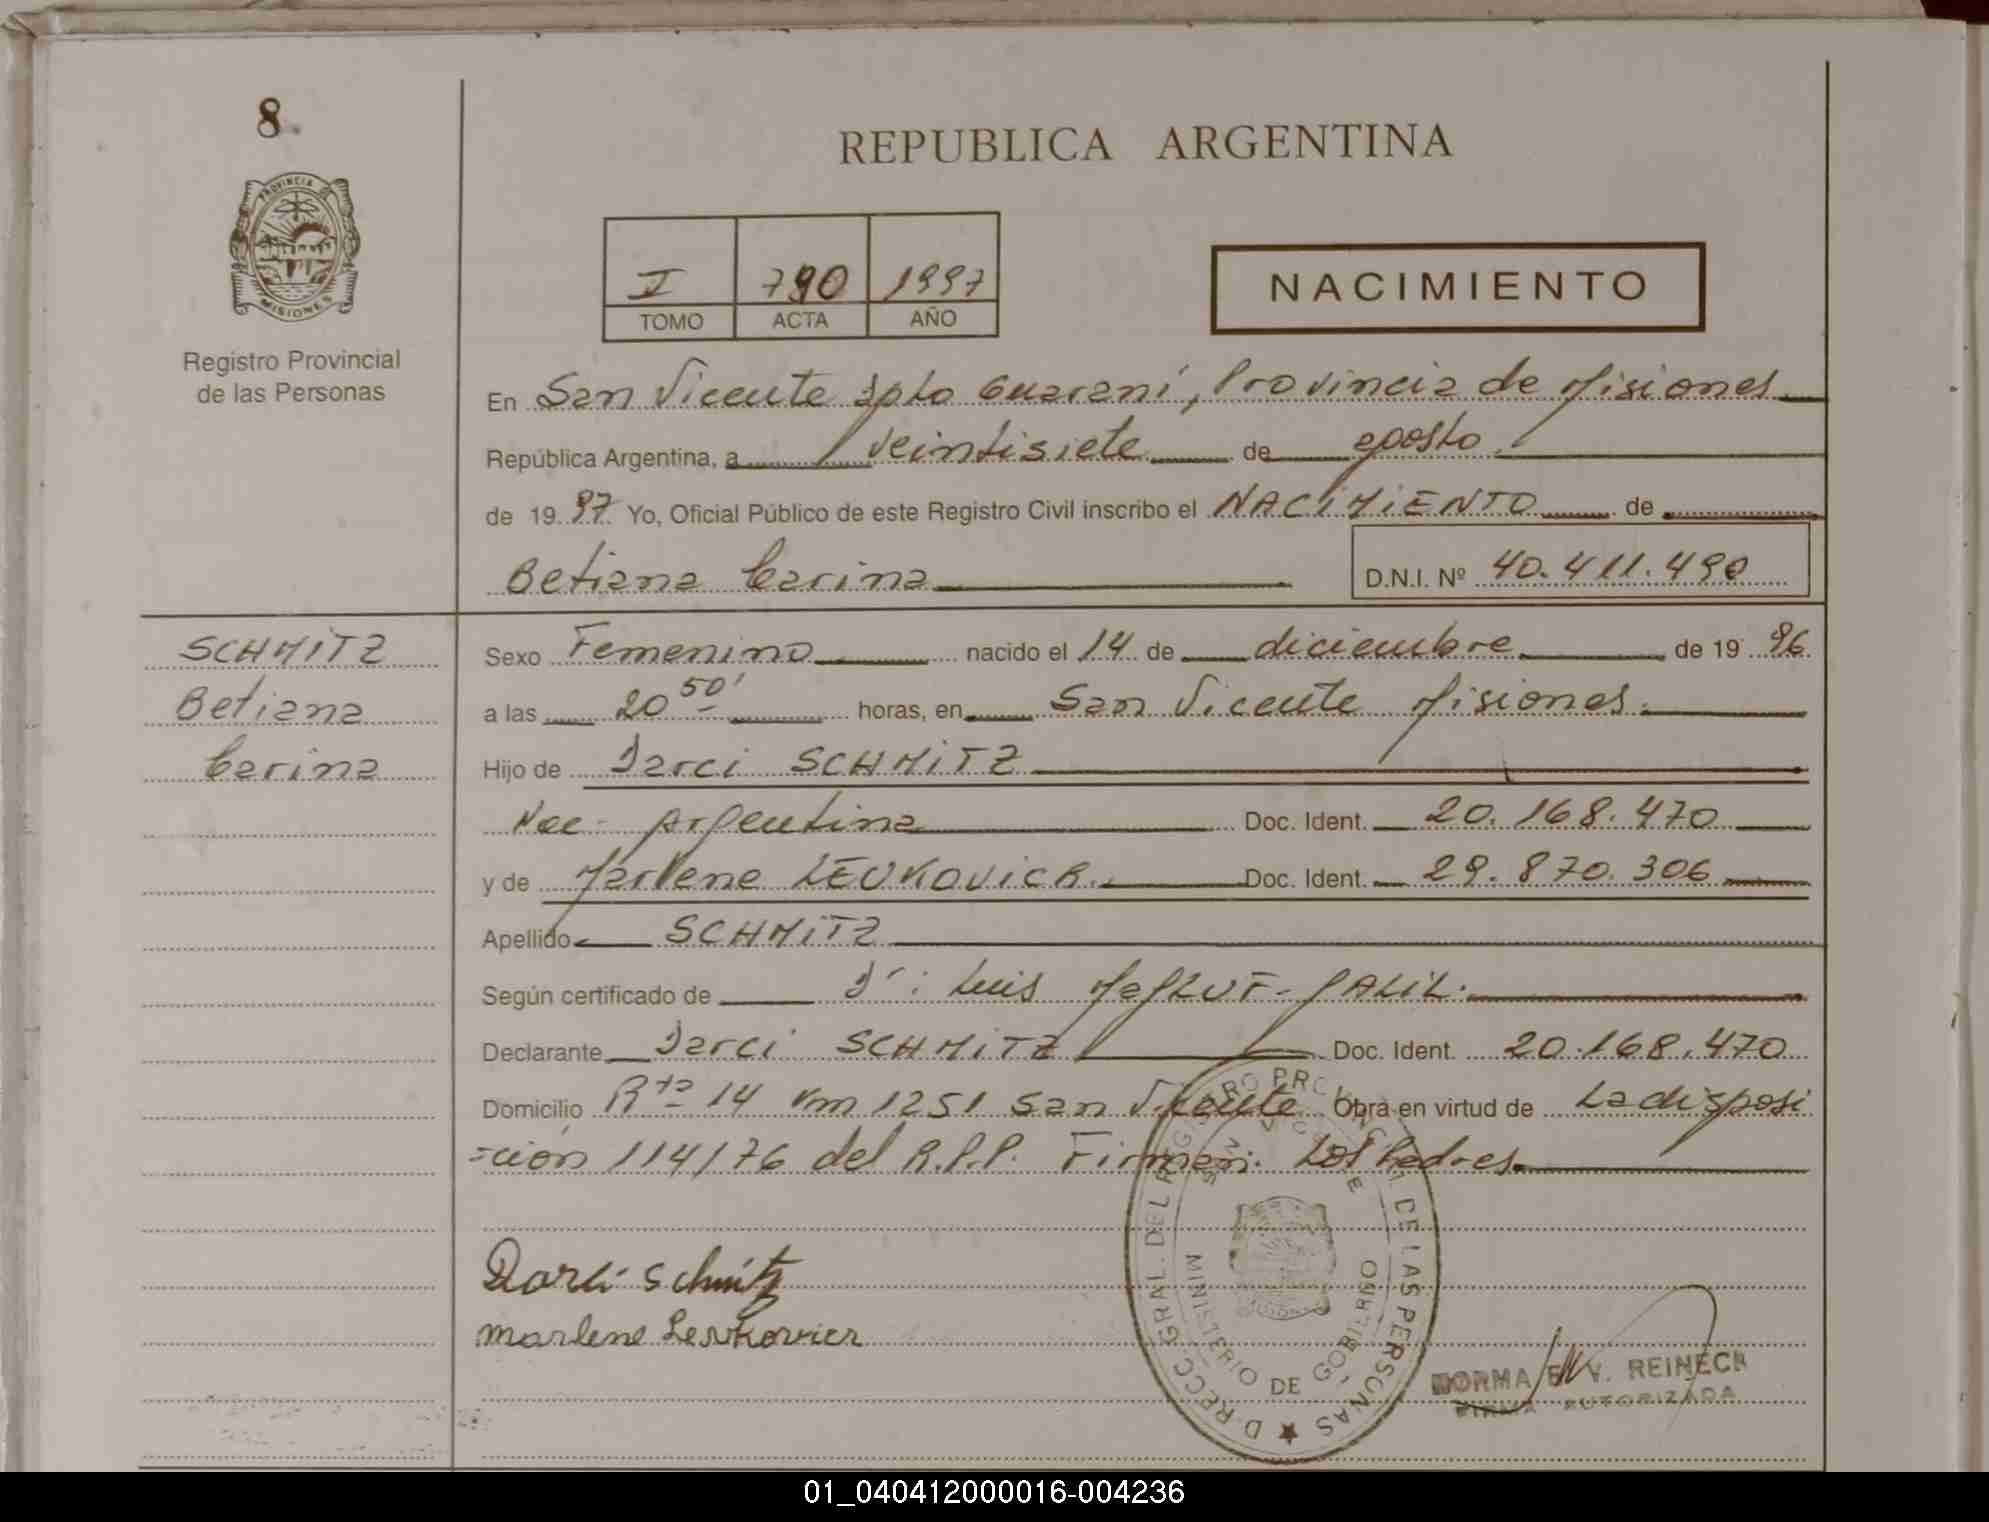 8
REPUBLICA ARGENTINA
PROVINCIA DE
MISIONES
Registro Provincial
de las Personas
I 790 1997
TOMO ACTA AÑO
NACIMIENTO
En San Vicente Dpto Guaraní, Provincia de Misiones
República Argentina, a veintisiete de agosto
de 1997 Yo, Oficial Público de este Registro Civil inscribo el NACIMIENTO de
Betiana Carina D.N.I. Nº 40.411.490
SCHMITZ
Betiana
Carina
Sexo Femenino nacido el 14 de diciembre de 1996
a las 20 50' horas, en San Vicente Misiones.
Hijo de Darci SCHMITZ
Nac. Argentina Doc. Ident. 20.168.470
y de Marlene LEVKOVICR. Doc. Ident. 29.870.306
Apellido SCHMITZ
Según certificado de Dr: Luis GALIL.
Declarante Darci SCHMITZ Doc. Ident. 20.168.470
Domicilio Rta 14 Km 1251 San Vicente Obra en virtud de La disposi
=ción 114/76 del R.P.P. Firman: Los Padres
Darci Schmitz
Marlene Levkovicr
DIRECC. GRAL. DEL REGISTRO PROVINCIAL DE LAS PERSONAS
SAN VICENTE
MINISTERIO DE GOBIERNO
NORMA E. V. REINECK
FIRMA AUTORIZADA
01_040412000016-004236